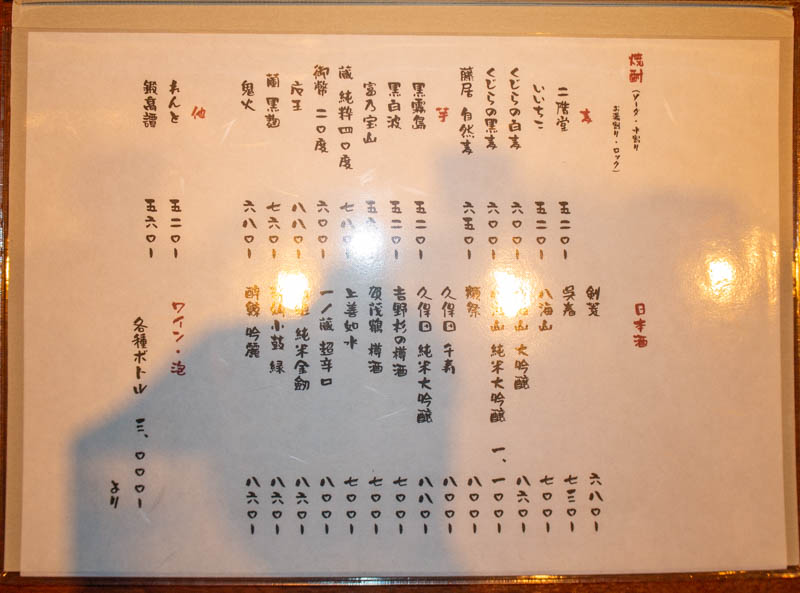 焼酎(ソーダ・水割り
お湯割り・ロック)
麦
二階堂 五二〇ー
いいちこ 五二〇ー
くじらの白麦 六〇〇ー
くじらの黒麦 六〇〇ー
藤居 自然麦 六五〇ー
芋
黒霧島 五二〇ー
黒白波 五二〇ー
富乃宝山
蔵 純粋四〇度 七八〇ー
御幣 二〇度 六〇〇ー
八八〇ー
蘭 黒麹 七六〇ー
鬼火 六八〇ー
他
れんと 五二〇ー
鍛高譚 五六〇ー
日本酒
剣菱 六八〇ー
呉春 七三〇ー
八海山 七〇〇ー
山 大吟醸 八六〇ー
山 純米大吟醸 一、一〇〇ー
獺祭 八〇〇ー
久保田 千寿 八〇〇ー
久保田 純米大吟醸 八八〇ー
吉野杉の樽酒 七〇〇ー
賀茂鶴 樽酒 七〇〇ー
上善如水 七〇〇ー
一ノ蔵 超辛口 八〇〇ー
純米金剱 八六〇ー
小鼓 緑 八六〇ー
酔鯨 吟麗 八六〇ー
ワイン・泡
各種ボトル 三、〇〇〇ー
より